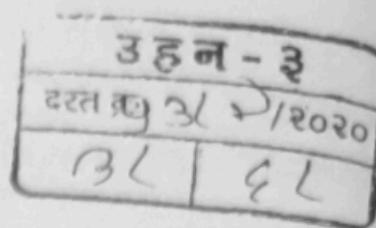 उहन - ३
दस्त क्र /२०२०
३८ ६८